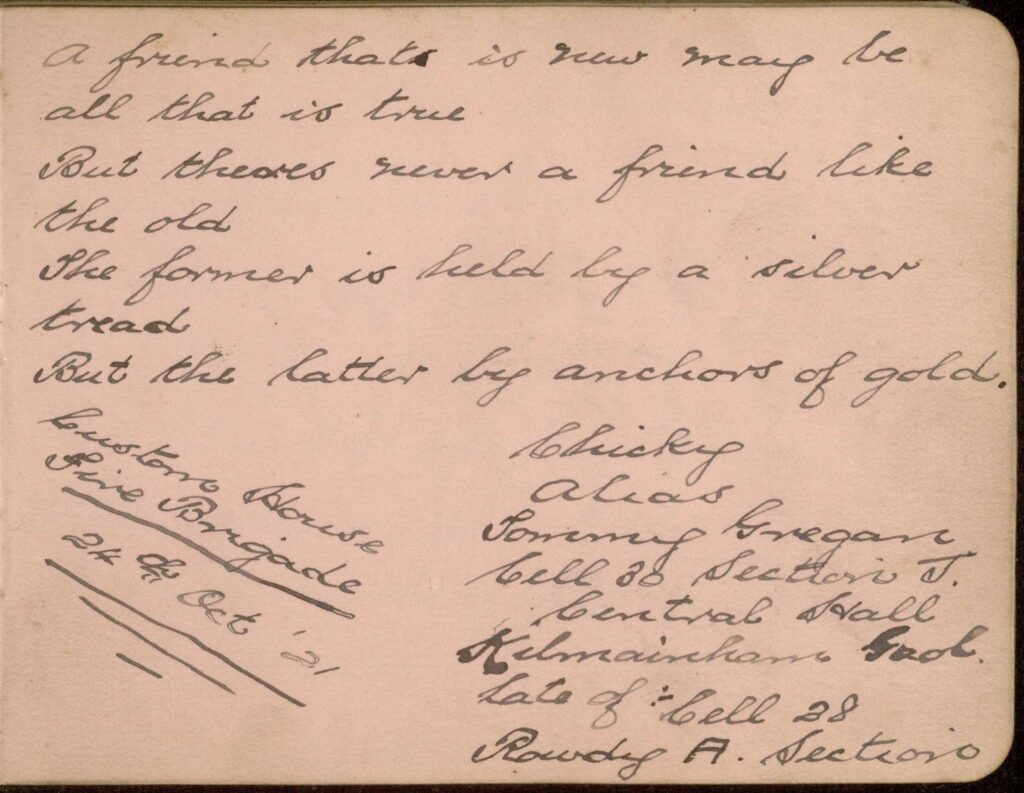 A friend thats is new may be
all that is true
But theres never a friend like
the old
The former is held by a silver
tread
But the latter by anchors of gold.
Custom House
Fire Brigade
24th Oct '21
Chicky
Alias
Tommy Gregan
Cell 30 Section J.
Central Hall
Kilmainham Gaol.
Late of :- Cell 28
Rowdy A. Section